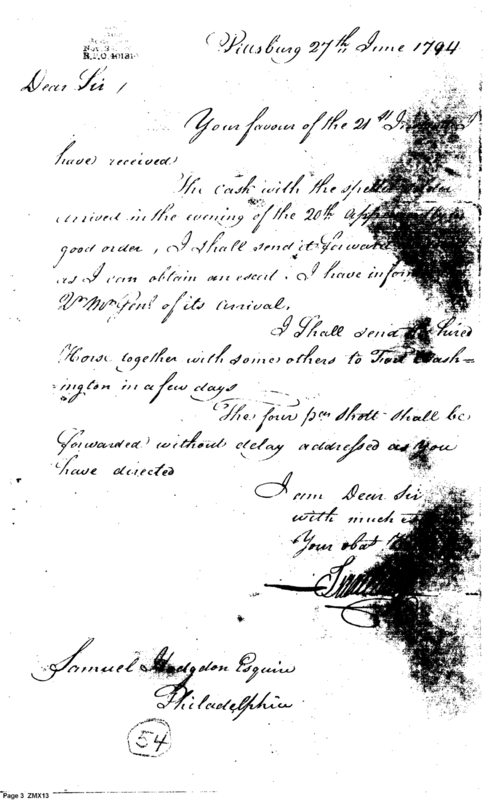 Pittsburg 27th June 1794
Dear Sir,
Your favour of the 21st
have received
The cash with the
arrived in the evening of the 20th
good order, I shall send it forward
as I can obtain an escort. I have
Qr Mr Genl of its arrival,
I Shall send hired
Horse together with some others to Fort Wash=
=ington in a few days
The four shott shall be
forwarded without delay addressed as you
have directed
I am Dear Sir
with much
Your obdt
Samuel Hodgdon Esquire
Philadelphia
54
Page 3 ZMX13